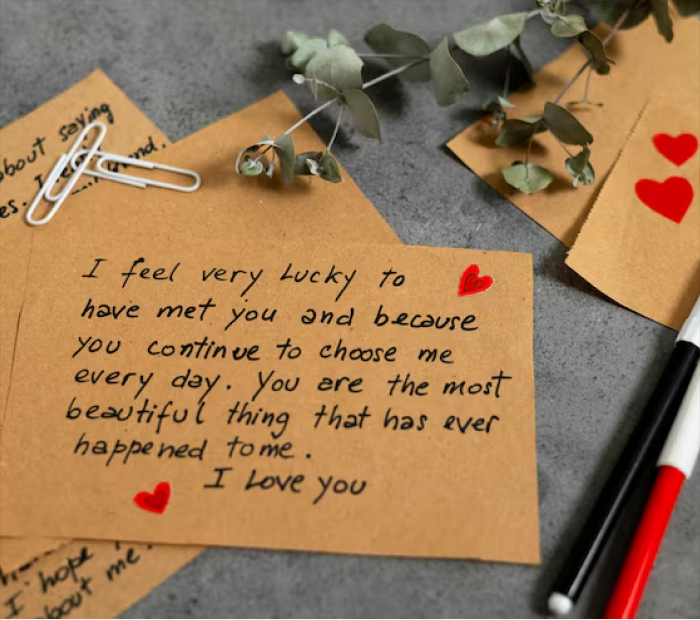 about saying
es. I
I feel very Lucky to
have met you and because
you continue to choose me
every day. You are the most
beautiful thing that has ever
happened to me.
I Love you
I hope
about me.